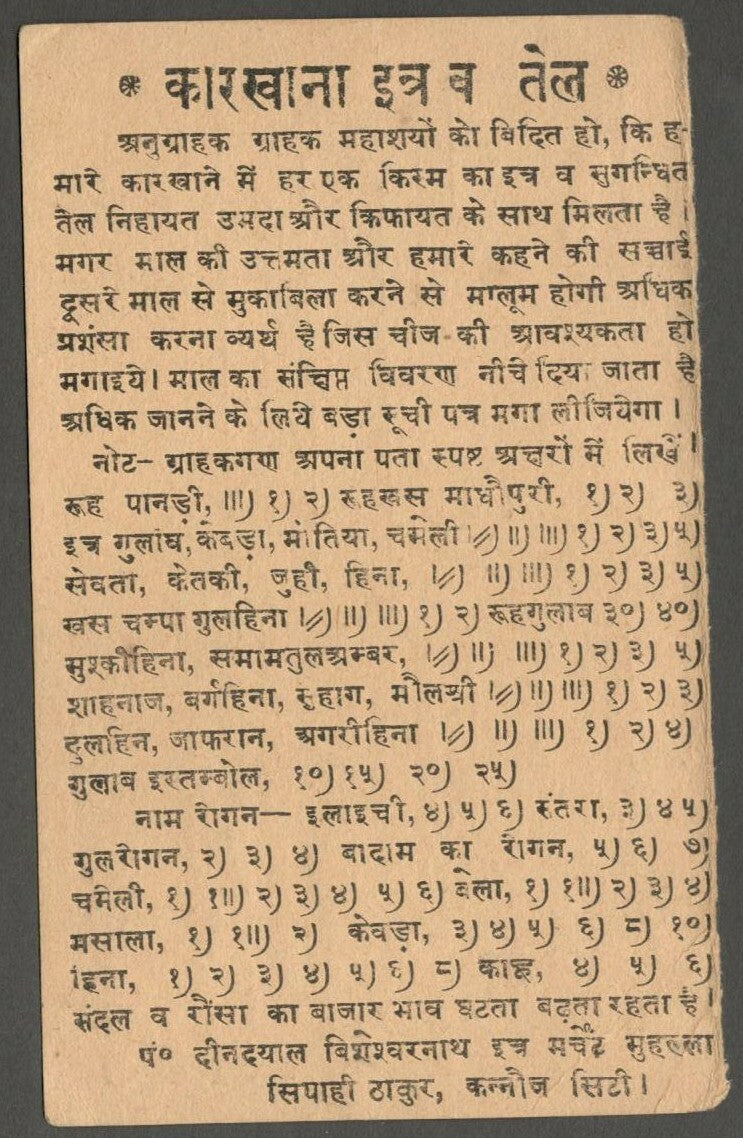 कारखाना इत्र व तेल
अनुग्राहक ग्राहक महाशयों को विदित हो, कि ह-
मारे कारखाने में हर एक किस्म का इत्र व सुगन्धित
तैल निहायत उमदा और किफायत के साथ मिलता है।
मगर माल की उत्तमता और हमारे कहने की सच्चाई
दूसरे माल से मुकाबिला करने से मालूम होगी अधिक
प्रशंसा करना व्यर्थ है जिस चीज की आवश्यकता हो
मगाइये। माल का संक्षिप्त विवरण नीचे दिया जाता है
अधिक जानने के लिये बड़ा सूची पत्र मगा लीजियेगा।
नोट- ग्राहकगण अपना पता स्पष्ट अक्षरों में लिखें।
रूह पानड़ी, ।॥) १) २) रूहखस माधौपुरी, १) २) ३)
इत्र गुलाब, केवड़ा, मोतिया, चमेली ।=) ॥) ॥।) १) २) ३) ५)
सेवती, केतकी, जुही, हिना, ।=) ॥) ॥।) १) २) ३) ५)
खस चम्पा गुलहिना ।=) ॥) ॥।) १) २) रूहगुलाब ३०) ४०)
मुश्कीहिना, समामतुलअम्बर, ।=) ॥) ॥।) १) २) ३) ५)
शाहनाज, बर्गहिना, सुहाग, मौलश्री ।=) ॥) ॥।) १) २) ३)
दुलहिन, जाफरान, अगरीहिना ।=) ॥) ॥।) १) २) ४)
गुलाब इस्तम्बोल, १०) १५) २०) २५)
नाम रोगन— इलाइची, ४) ५) ६) संतरा, ३) ४ ५)
गुलरोगन, २) ३) ४) बादाम का रोगन, ५) ६) ७)
चमेली, १) १॥) २) ३) ४) ५) ६) बेला, १) १॥) २) ३) ४)
मसाला, १) १॥) २) केवड़ा, ३) ४) ५) ६) ८) १०)
हिना, १) २) ३) ४) ५) ६) ८) काहू, ४) ५) ६)
संदल व रौंसा का बाजार भाव घटता बढ़ता रहता है।
पं० दीनदयाल बिशेश्वरनाथ इत्र मर्चेंट मुहल्ला
सिपाही ठाकुर, कन्नौज सिटी।